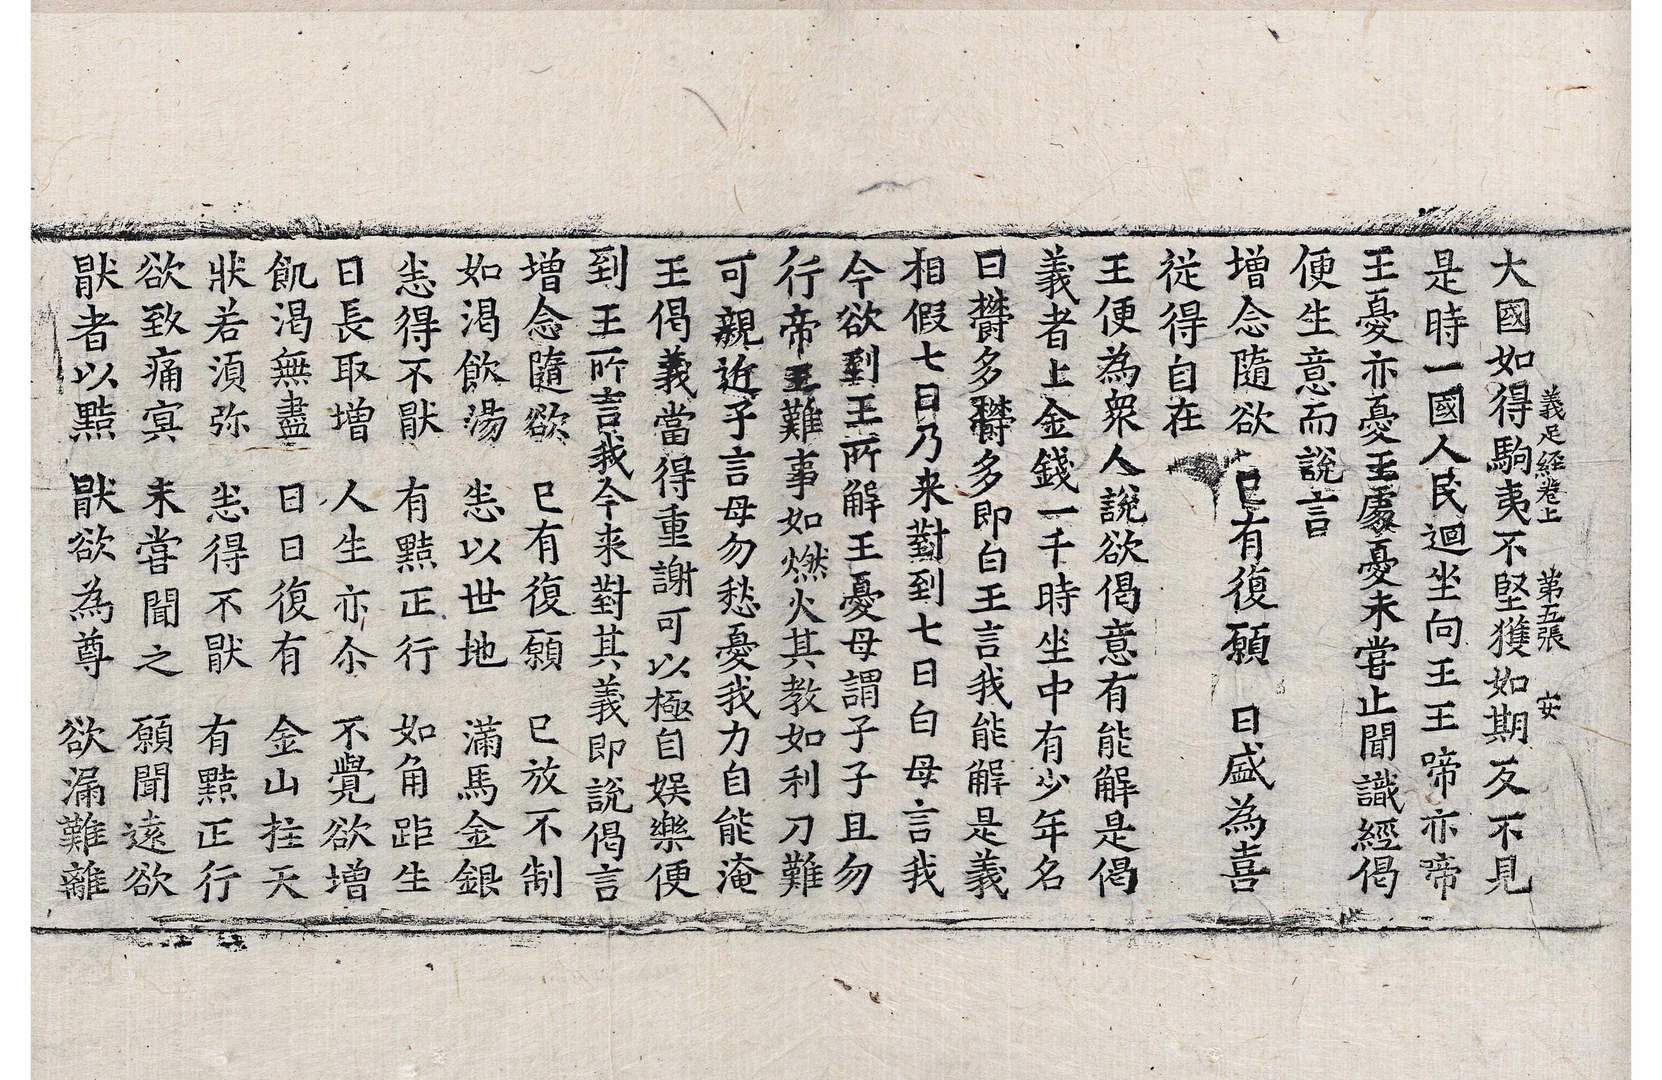 義足經卷上　第五張　安
大國如得駒夷不堅獲如期反不見
是時一國人民迴坐向王王啼亦啼
王憂亦憂王處憂未甞止聞識經偈
便生意而說言
增念隨欲　已有復願　日盛為喜
從得自在
王便為衆人說欲偈意有能解是偈
義者上金錢一千時坐中有少年名
曰欝多欝多即白王言我能解是義
相假七日乃来對到七日白母言我
今欲到王所解王憂母謂子子且勿
行帝王難事如燃火其教如利刀難
可親近子言母勿愁憂我力自能淹
王偈義當得重謝可以極自娱樂便
到王所言我今来對其義即說偈言
增念隨欲　已有復願　已放不制
如渴飲湯　恚以世地　滿馬金銀
恚得不猒　有黠正行　如角距生
日長取增　人生亦尒　不覺欲增
飢渴無盡　日日復有　金山拄天
狀若湏弥　恚得不猒　有黠正行
欲致痛㝠　未甞聞之　願聞遠欲
猒者以黠　猒欲為尊　欲漏難離